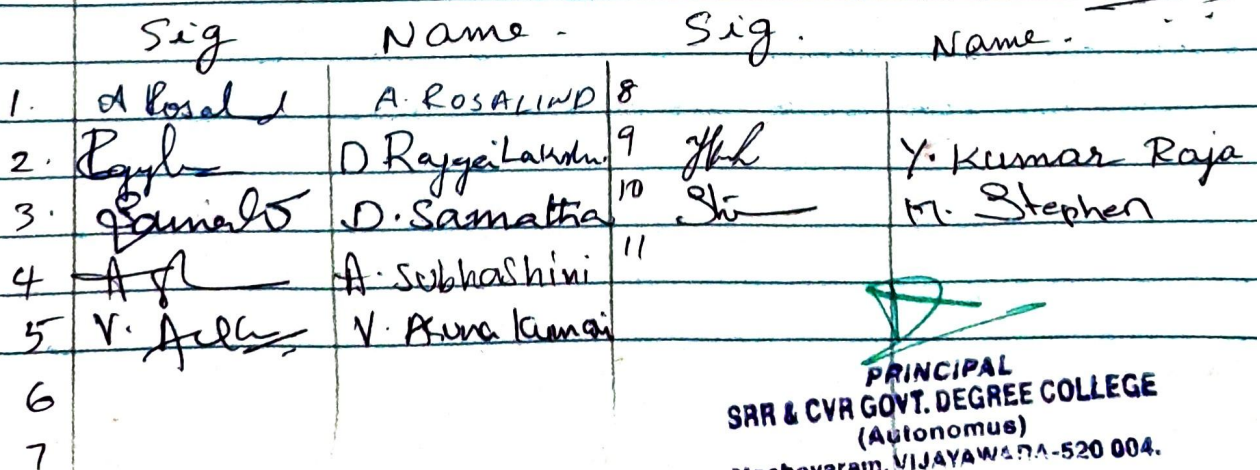 Sig Name - Sig. Name.
1. A Rosal A. ROSALIND 8
2. D Rajya Lakshmi 9 Y. Kumar Raja
3. D. Samatha 10 M. Stephen
4 A. Subhashini 11
5 V. V. Aruna Kumari
6
7
PRINCIPAL
SRR & CVR GOVT. DEGREE COLLEGE
(Autonomus)
VIJAYAWADA-520 004.